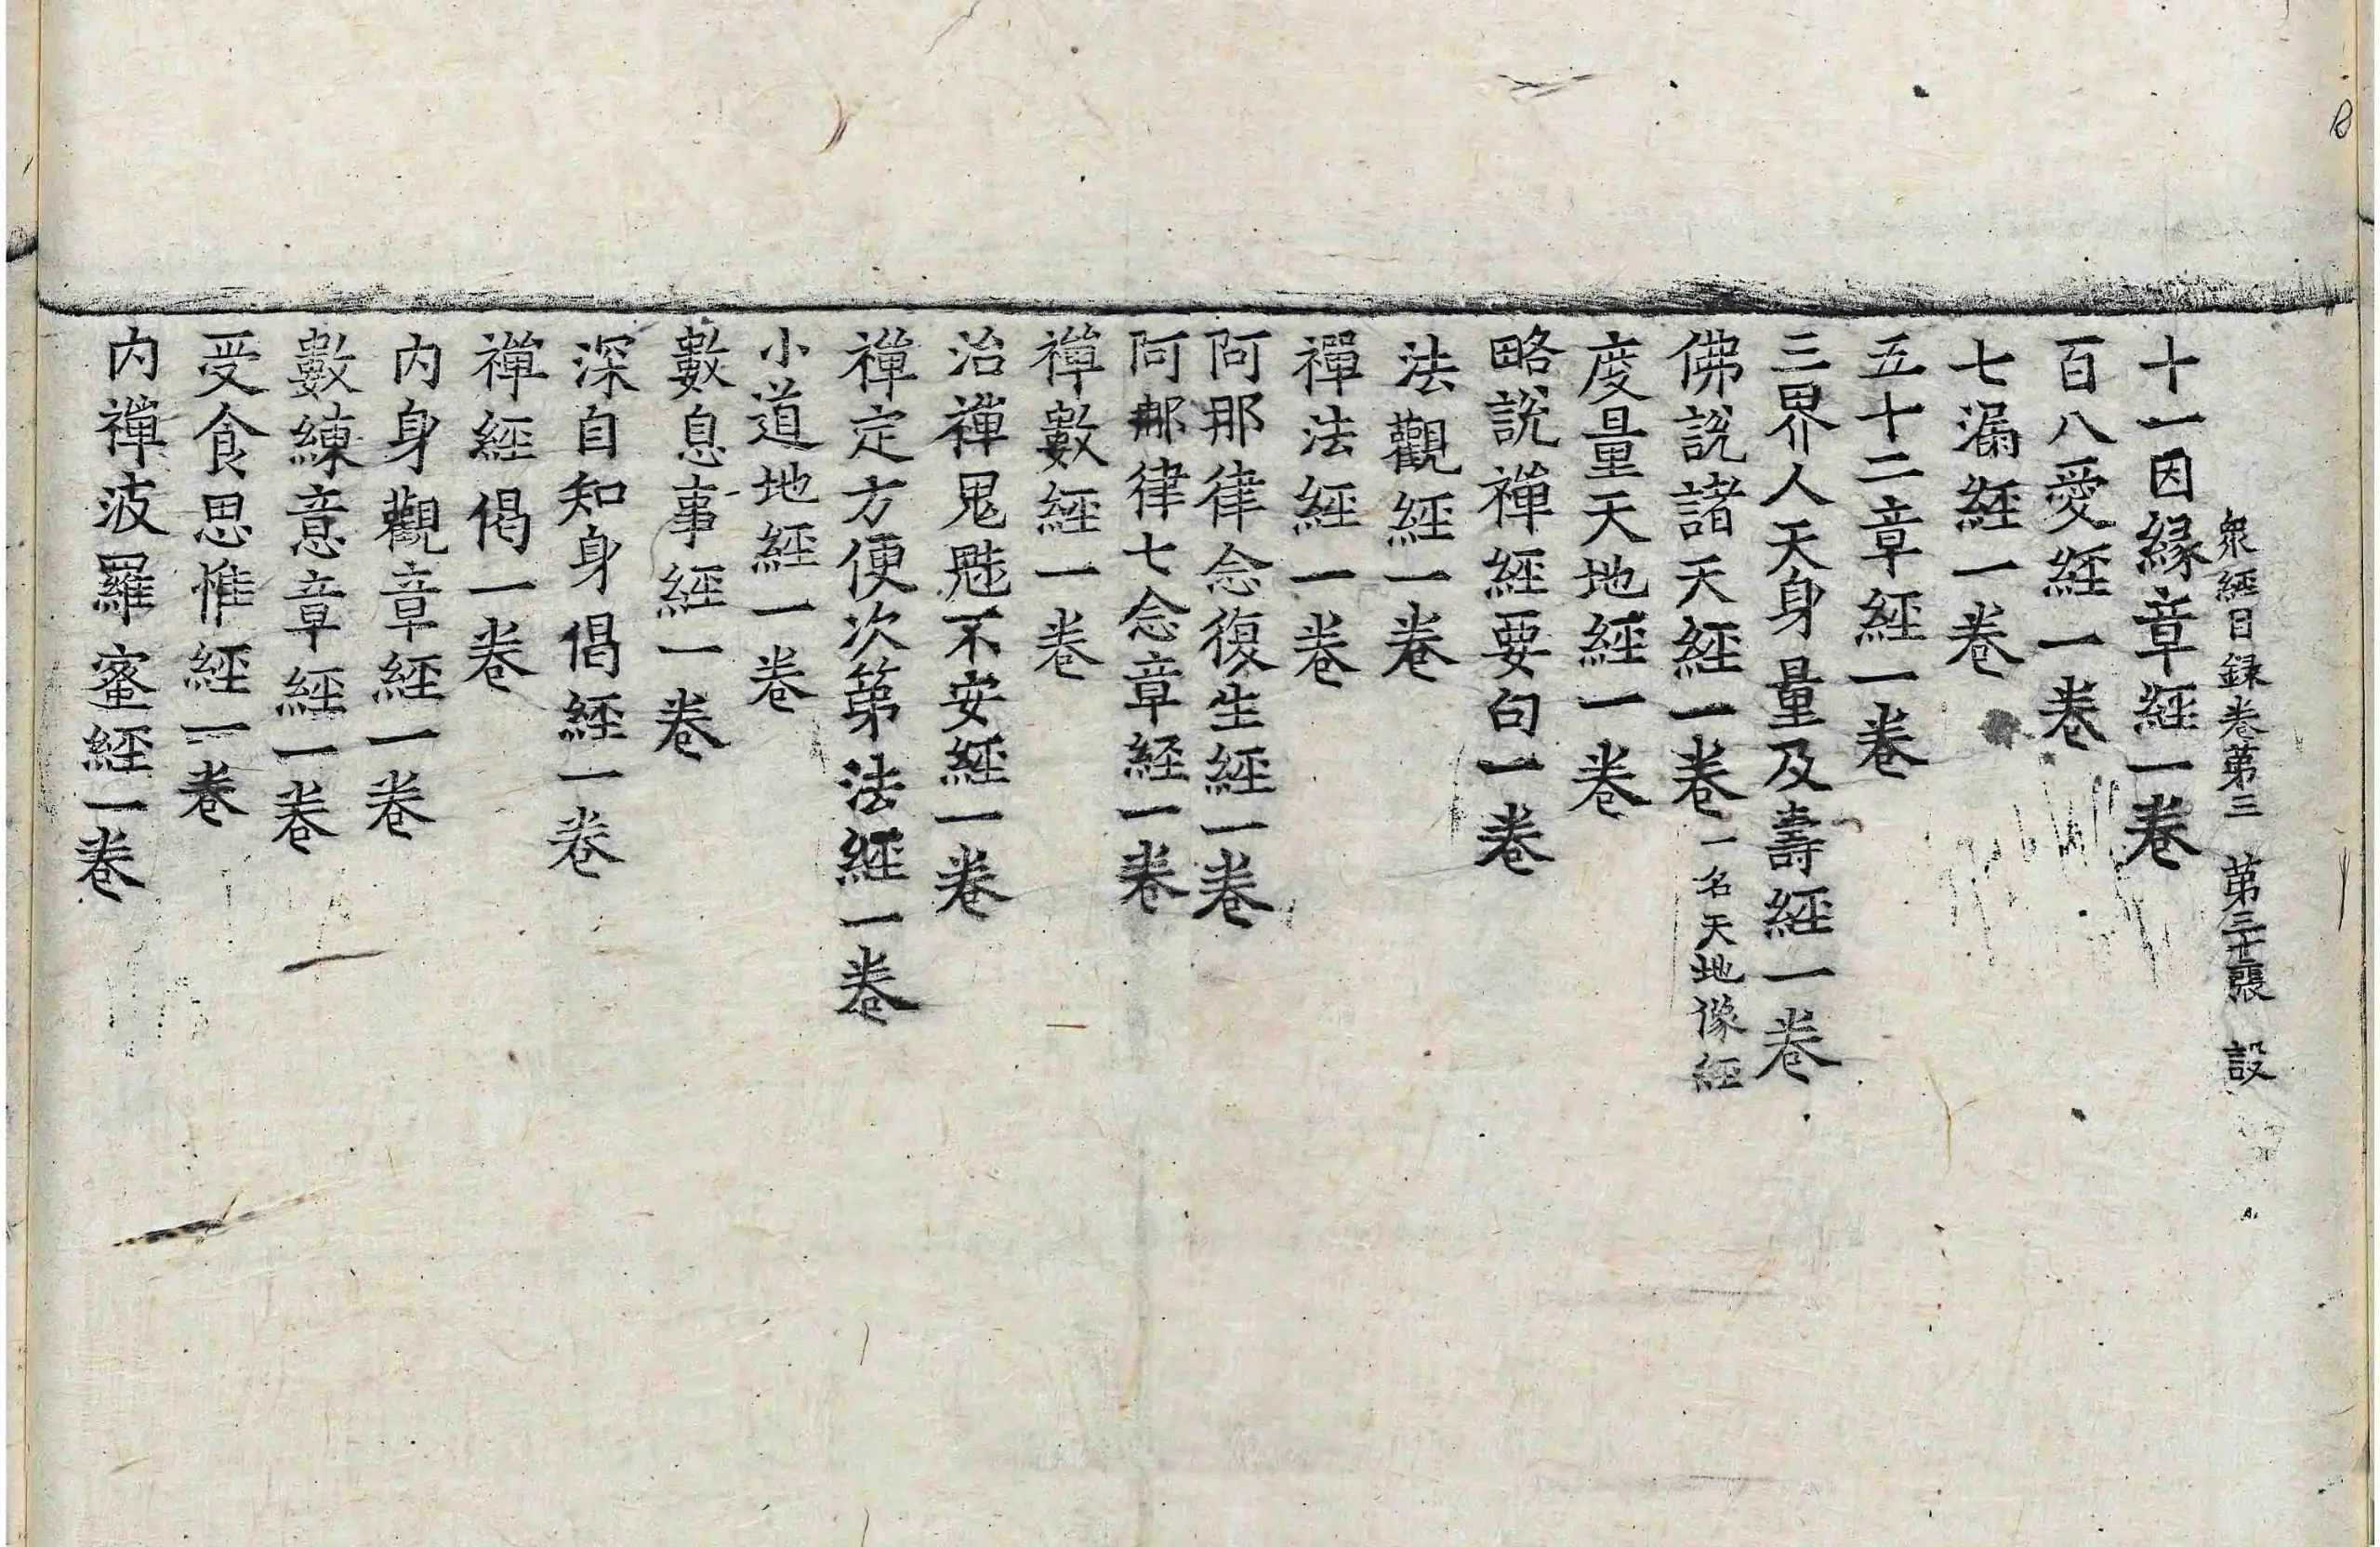 衆經目録卷第三 第三十張 設
十一因縁章經一卷
百八愛經一卷
七漏經一卷
五十二章經一卷
三界人天身量及壽經一卷
佛說諸天經一卷一名天地像經
度量天地經一卷
略說禪經要句一卷
法觀經一卷
禪法經一卷
阿那律念復生經一卷
阿那律七念章経一卷
禪數經一卷
治禪鬼魅不安經一卷
禪定方便次第法經一卷
小道地經一卷
數息事經一卷
深自知身偈經一卷
禪經偈一卷
内身觀章經一卷
數練意章經一卷
受食思惟經一卷
内禪波羅蜜經一卷